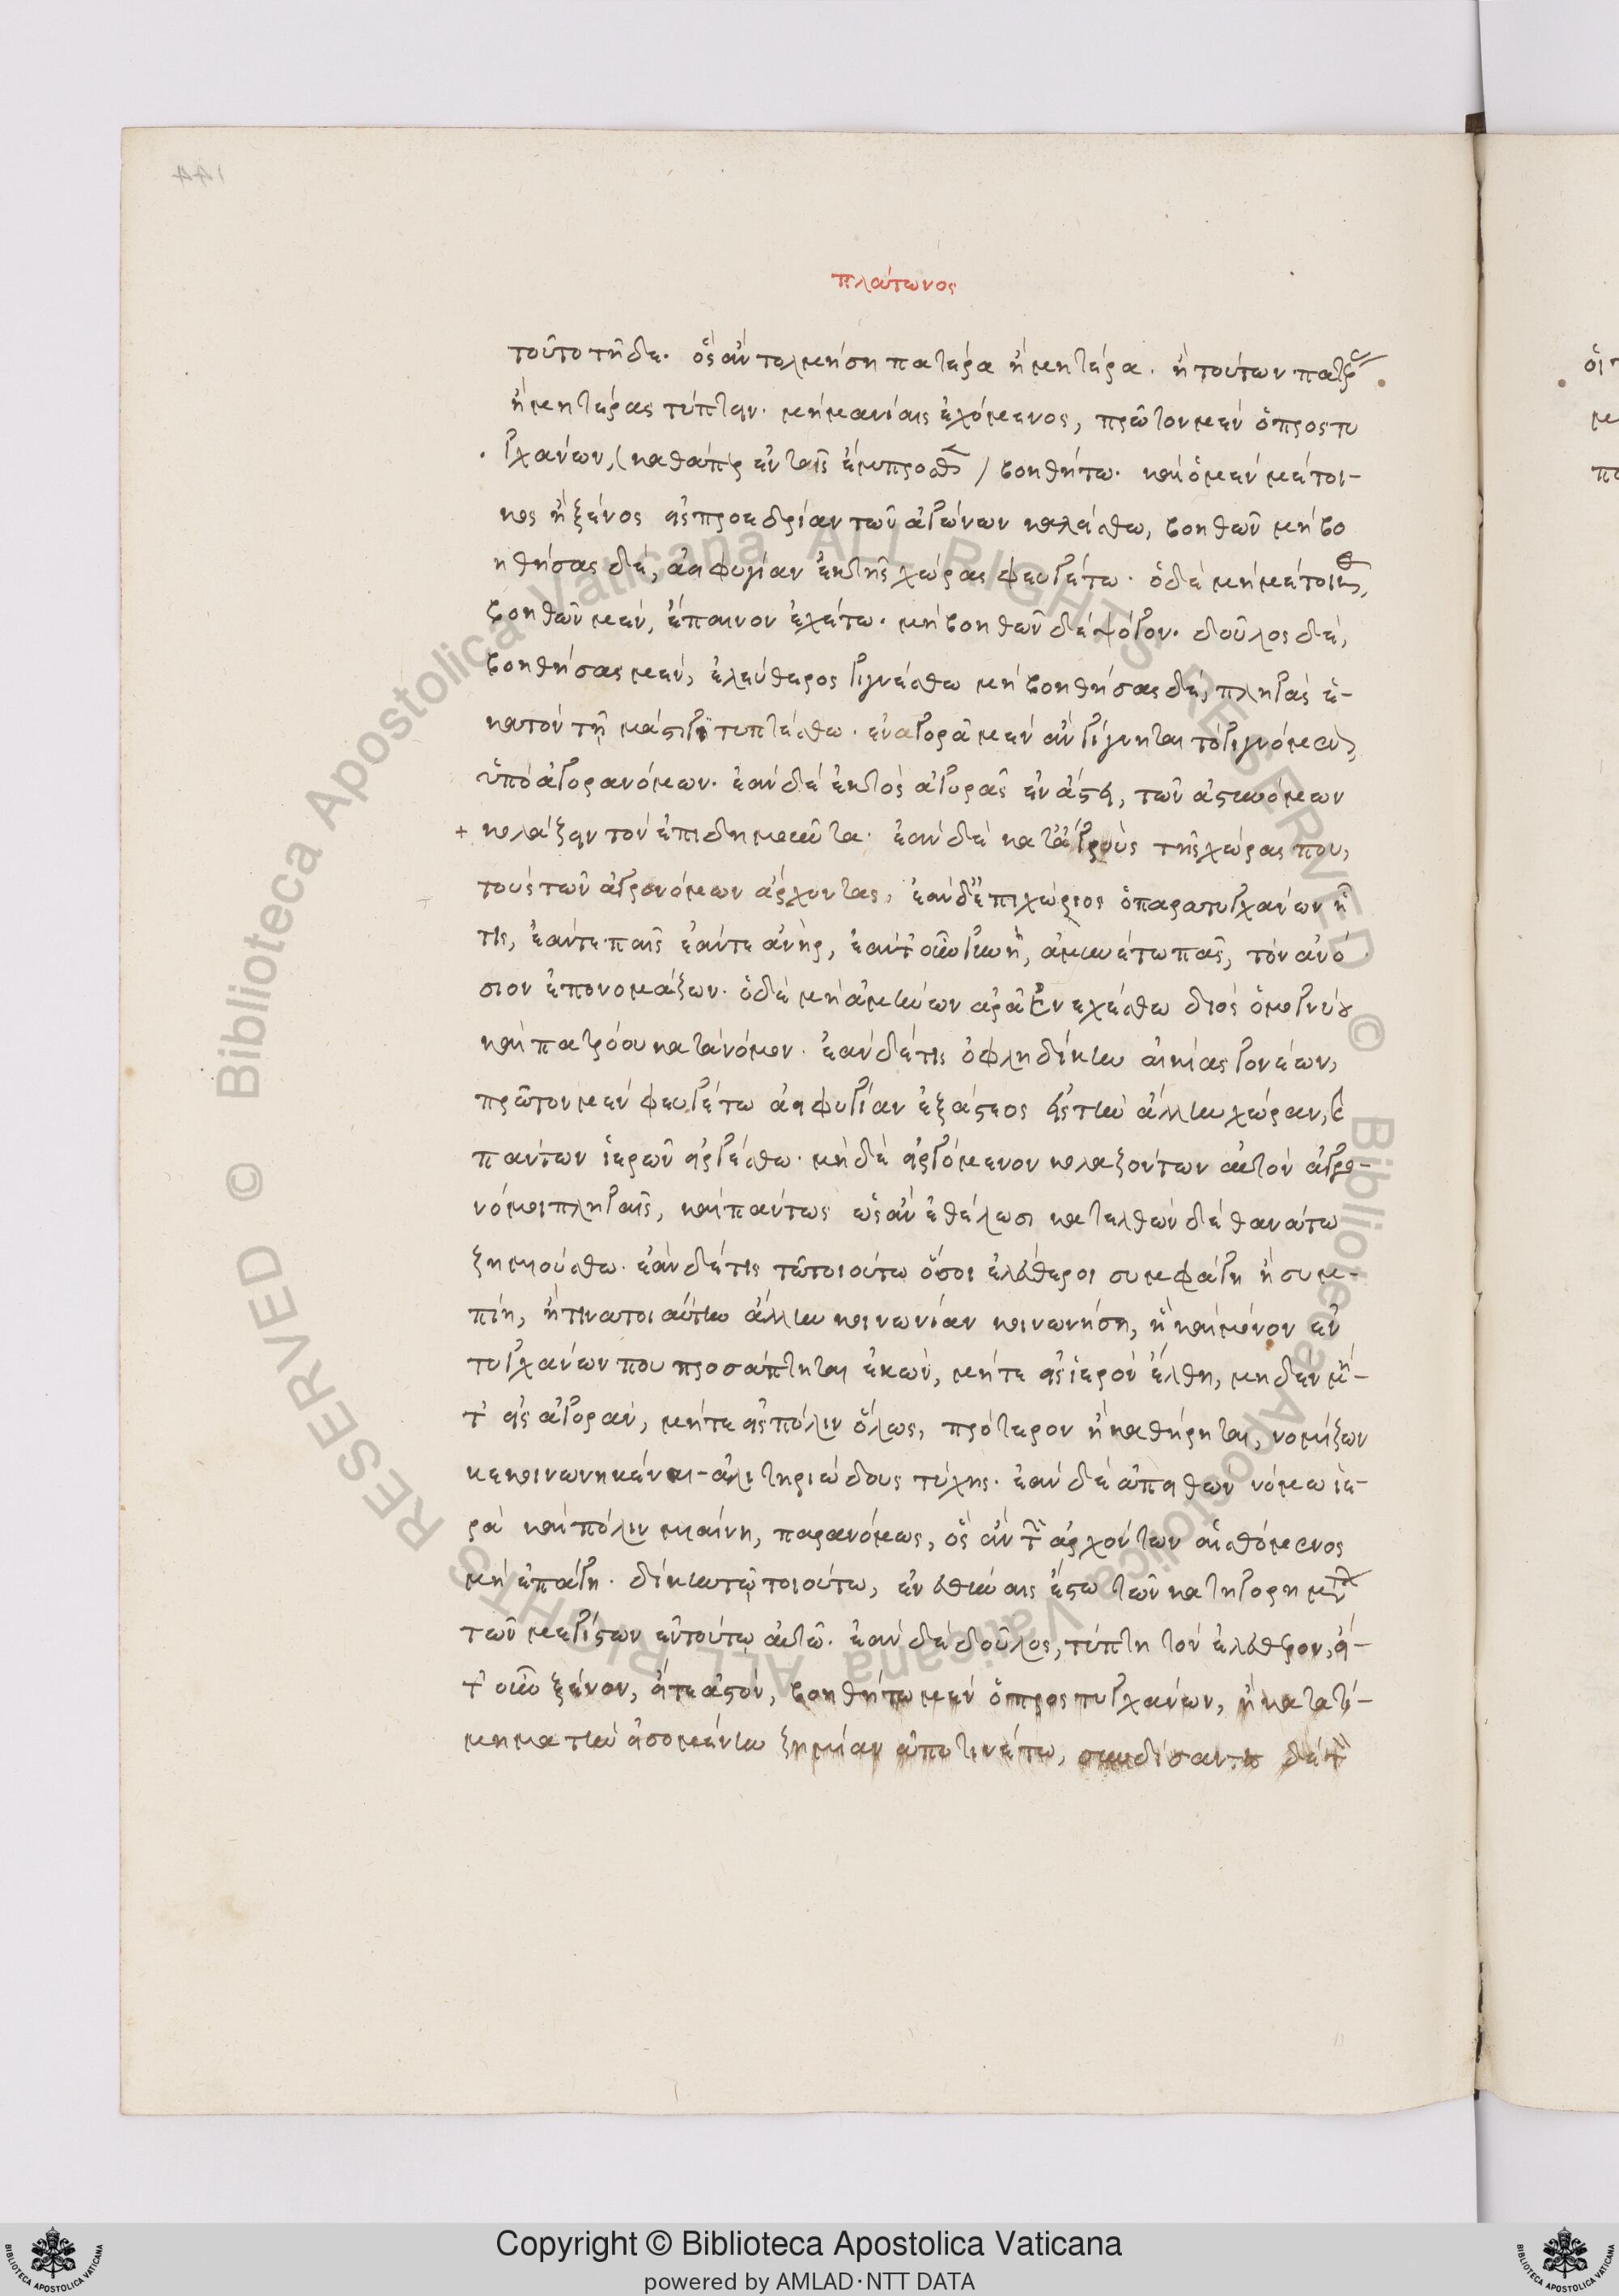 144
πλάτωνος
τοῦτο τῆδε. ὃς ἂν τολμήση πατέρα ἢ μητέρα. ἢ τούτων πατρ
ἢ μητέρας τύπτειν. μὴ μανίαις ἐχόμενος, πρῶτον μὲν ὁ προστυ
γχάνων, (καθάπερ ἐν τοῖς ἔμπροσθεν / βοηθήτω. καὶ ὁ μὲν μέτοι-
κος ἢ ξένος εἰς προεδρίαν τῶν ἀγώνων καλείσθω, βοηθῶν μὴ βο
ηθήσας δὲ, ἀειφυγίαν ἐκ τῆς χώρας φευγέτω. ὁ δὲ μὴ μέτοικος,
βοηθῶν μὲν, ἔπαινον ἐχέτω. μὴ βοηθῶν δὲ ψόγον. δοῦλος δὲ,
βοηθήσας μὲν, ἐλεύθερος γιγνέσθω μὴ βοηθήσας δὲ, πληγὰς ἑ-
κατὸν τῇ μάστιγι τυπτέσθω. ἐν ἀγορᾶ μὲν ἂν γίγνηται τὸ γιγνόμενον,
ὑπὸ ἀγορανόμων. ἐὰν δὲ ἐκτὸς ἀγορᾶς ἐν ἄστει, τῶν ἀστυνόμων
+ κολάζειν τὸν ἐπιδημοῦντα. ἐὰν δὲ κατ' ἀγροὺς τῆς χώρας που,
τοὺς τῶν ἀγρονόμων ἄρχοντας. ἐὰν δ' ἐπιχώριος ὁ παρατυγχάνων ἦ
τις, ἐάντε παῖς ἐάντε ἀνὴρ, ἐάν τ' οὖν γυνὴ, ἀμυνέτω πᾶς, τὸν ἀνό
σιον ἐπονομάζων. ὁ δὲ μὴ ἀμύνων ἀρᾶ ἐνεχέσθω διὸς ὁμογνίου
καὶ πατρώου κατὰ νόμον. ἐὰν δέ τις ὄφλη δίκην αἰκίας γονέων,
πρῶτον μὲν φευγέτω ἀειφυγίαν ἐξ ἄστεος εἰς τὴν ἄλλην χώραν, καὶ
πάντων ἱερῶν εἰργέσθω. μὴ δὲ εἰργόμενον κολαζόντων αὐτὸν ἀγρο-
νόμοι πληγαῖς, καὶ πάντως ὡς ἂν ἐθέλωσι κατελθὼν δὲ θανάτω
ζημιούσθω. ἐὰν δέ τις τῶ τοιούτω ὅσοι ἐλεύθεροι συμφάγη ἢ συμ-
πίη, ἤ τινα τοιαύτην ἄλλην κοινωνίαν κοινωνήση, ἢ καὶ μόνον ἐν
τυγχάνων που προσάπτηται ἑκὼν, μήτε εἰς ἱερὸν ἔλθη, μηδὲν μή-
τ' εἰς ἀγορὰν, μήτε εἰς πόλιν ὅλως, πρότερον ἢ καθήρηται, νομίζων
κεκοινωνηκέναι - ἀλιτηριώδους τύχης. ἐὰν δὲ ἀπειθῶν νόμω ἱε-
ρὰ καὶ πόλιν μιαίνη, παρανόμως, ὃς ἂν τῶν ἀρχόντων αἰσθόμενος
μὴ ἐπάγη. δίκην τῷ τοιούτω, ἐν εὐθύναις ἔστω τῶν κατηγορημάτων
τῶν μεγίστων ἓν τούτῳ αὐτῶ. ἐὰν δὲ δοῦλος, τύπτη τὸν ἐλεύθερον, εἴ-
τ' οὖν ξένον, εἴτε ἀστὸν, βοηθήτω μὲν ὁ προστυγχάνων, ἢ κατὰ τί-
μημα τὴν εἰσομένην ζημίαν ἀποτινέτω, συνδήσαντες δὲ